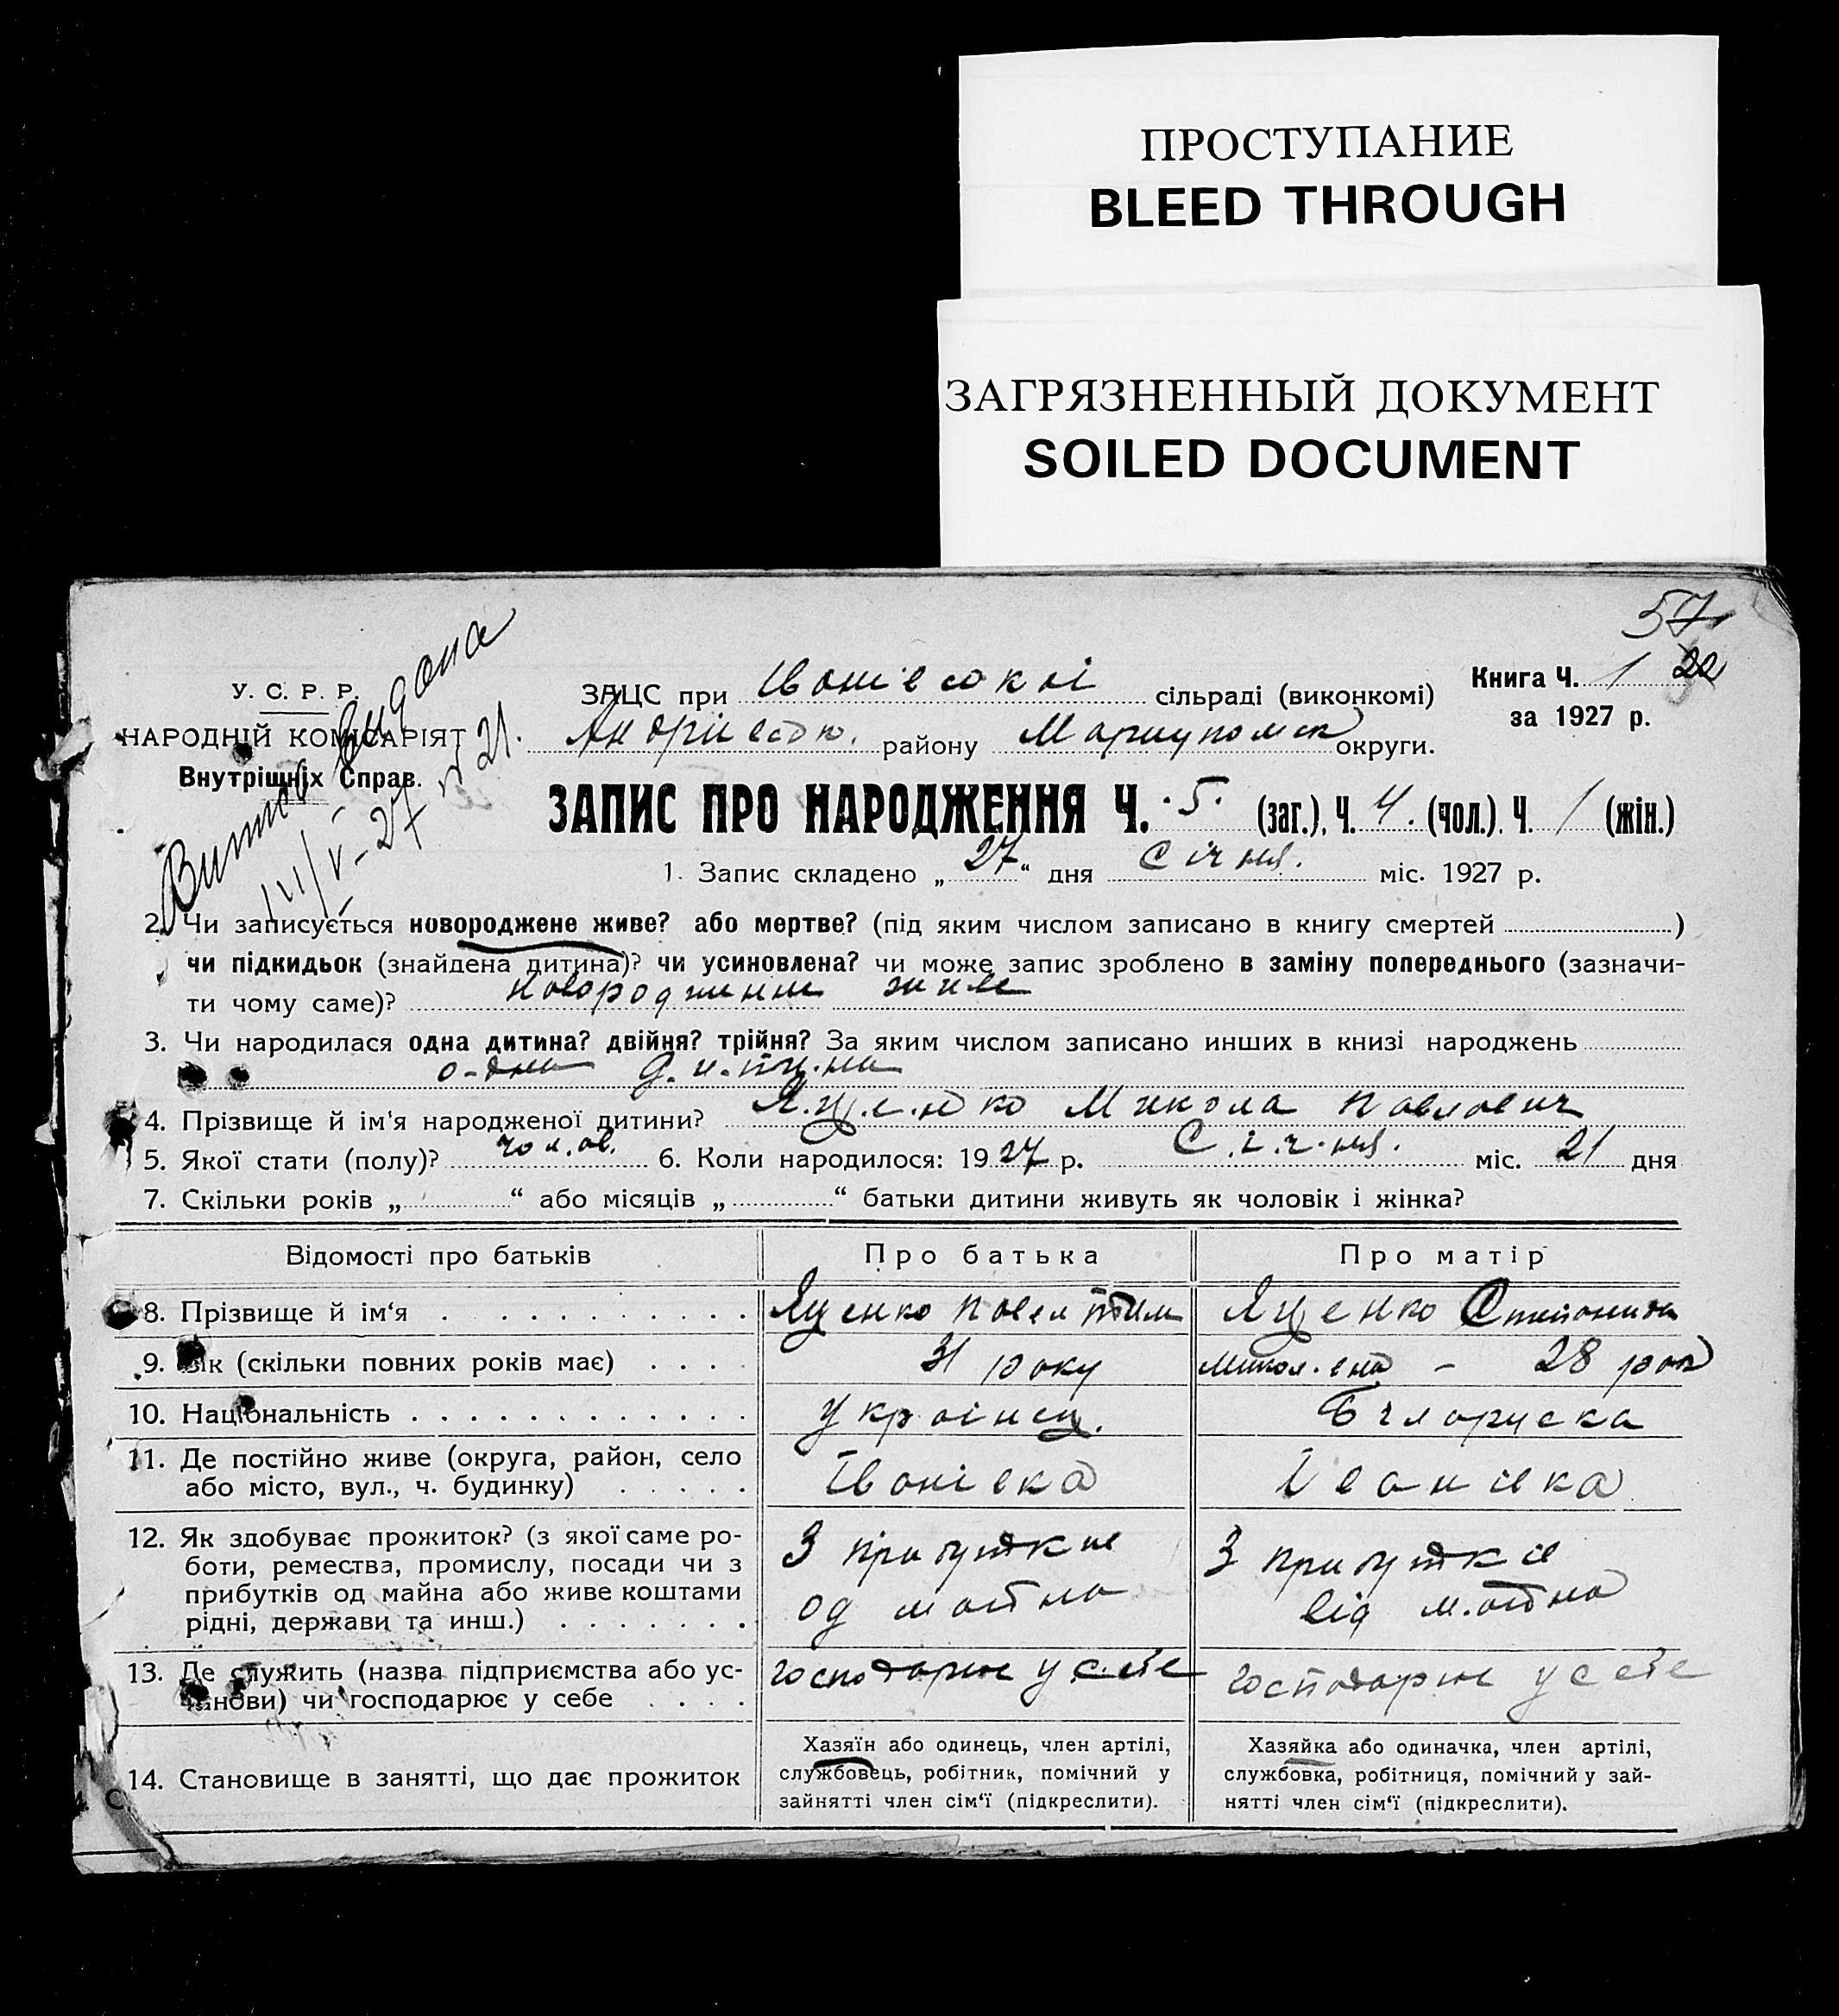 ПРОСТУПАНИЕ
BLEED THROUGH
ЗАГРЯЗНЕННЫЙ ДОКУМЕНТ
SOILED DOCUMENT
57
У. С. Р. Р.
НАРОДНІЙ КОМІСАРІЯТ
Внутрішніх Справ.
видана
№ 21.
ЗАЦС при Іванівській сільраді (виконкомі)
Книга Ч. 1
за 1927 р.
Андріївськ. району Маріупольск округи.
ЗАПИС ПРО НАРОДЖЕННЯ Ч. 5. (заг.), Ч. 4. (чол.). Ч. 1 (жін.)
1. Запис складено „ 27 “ дня Січня. міс. 1927 р.
2. Чи записується новороджене живе? або мертве? (під яким числом записано в книгу смертей )
чи підкидьок (знайдена дитина)? чи усиновлена? чи може запис зроблено в заміну попереднього (зазначи-
ти чому саме)? новороджене живе
3. Чи народилася одна дитина? двійня? трійня? За яким числом записано инших в книзі народжень
одна дитина
4. Прізвище й ім‘я народженої дитини? Яценко Микола Павлович
5. Якої стати (полу)? чолов. 6. Коли народилося: 1927 р. Січня. міс. 21 дня
7. Скільки років „ “ або місяців „ “ батьки дитини живуть як чоловік і жінка?
Відомості про батьків Про батька Про матір
8. Прізвище й ім‘я Яценко Павел Яценко Степанида
9. Вік (скільки повних років має) 31 року 28 рок
10. Національність українец. Білоруска
11. Де постійно живе (округа, район, село
або місто, вул., ч. будинку) Іванівка Іванівка
12. Як здобуває прожиток? (з якої саме ро-
боти, ремества, промислу, посади чи з
прибутків од майна або живе коштами
рідні, держави та инш.)
З прибутків
од майна
З прибутків
від майна
13. Де служить (назва підприємства або ус-
танови) чи господарює у себе
господарює у себе господарює у себе
14. Становище в занятті, що дає прожиток
Хазяїн або одинець, член артілі,
службовець, робітник, помічний у
зайнятті член сім‘ї (підкреслити).
Хазяйка або одиначка, член артілі,
службовка, робітниця, помічний у зай-
нятті член сім‘ї (підкреслити).